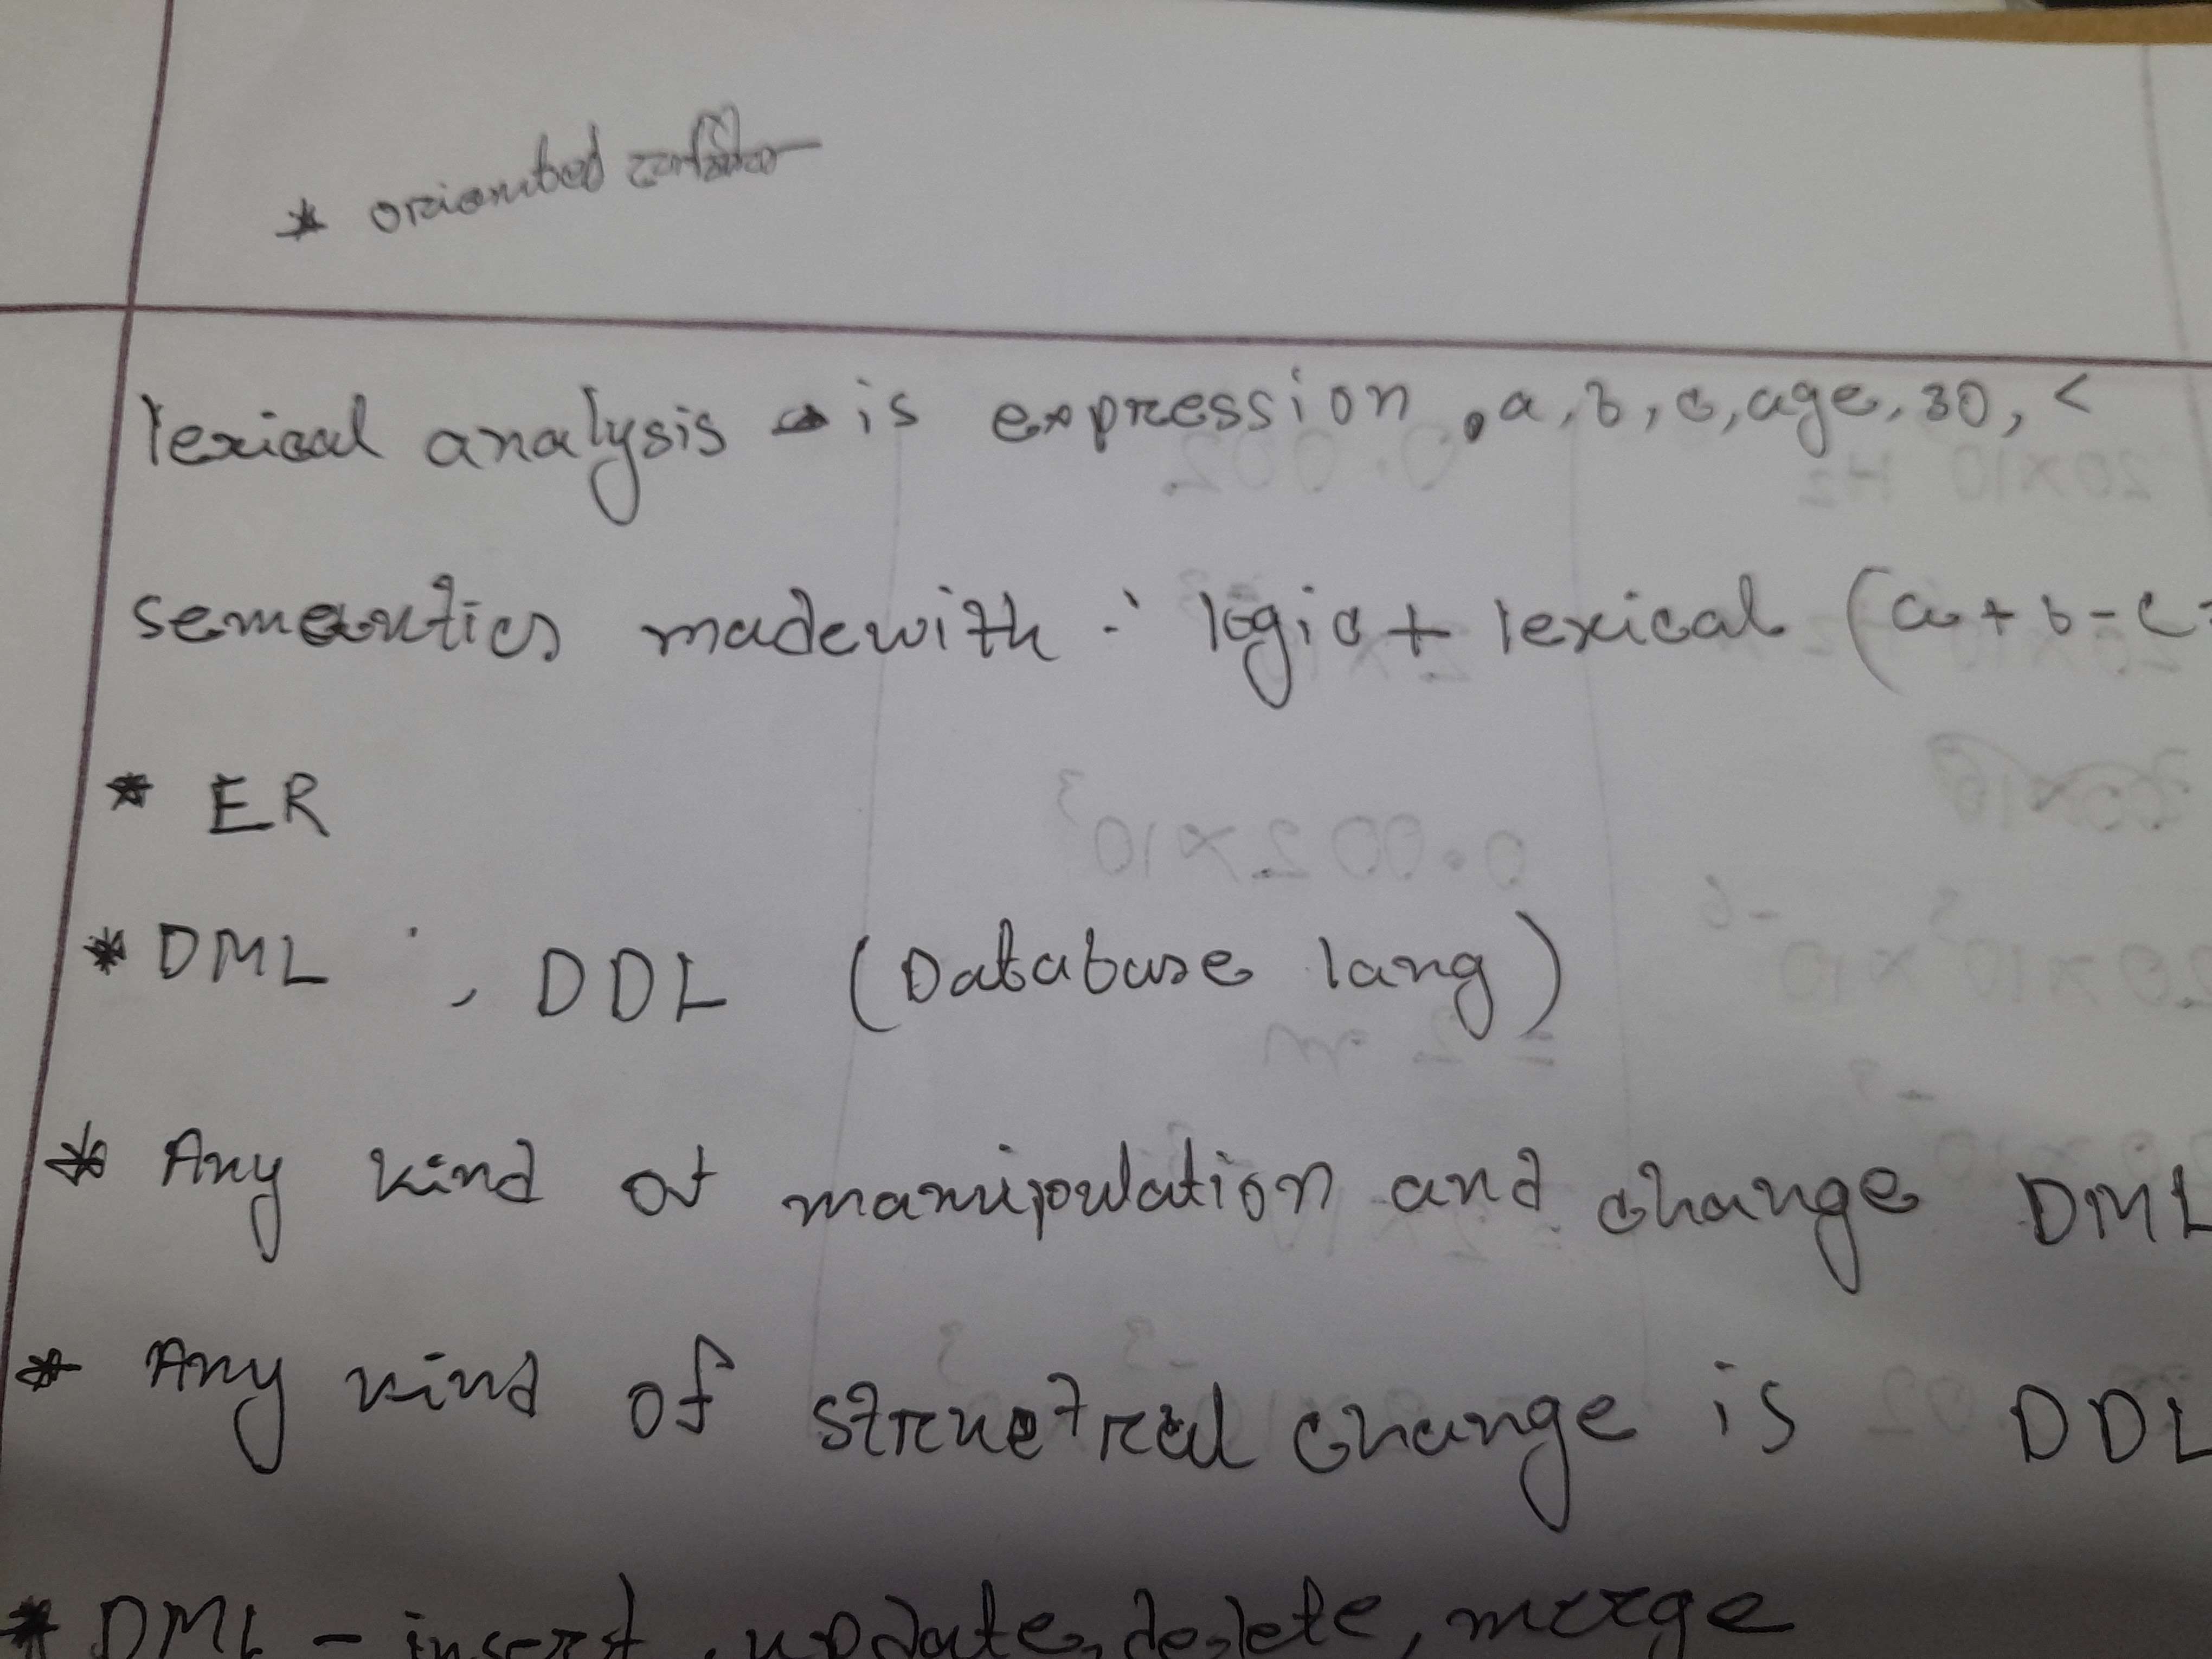 * oriented
lexical analysis is expression, a, b, c, age, 30, <
semantics madewith : logic + lexical (a + b - c
* ER
* DML , DDL (Database lang)
* Any kind of manipulation and change DML
* Any kind of structral change is DDL
* DML - insert, update, delete, merge